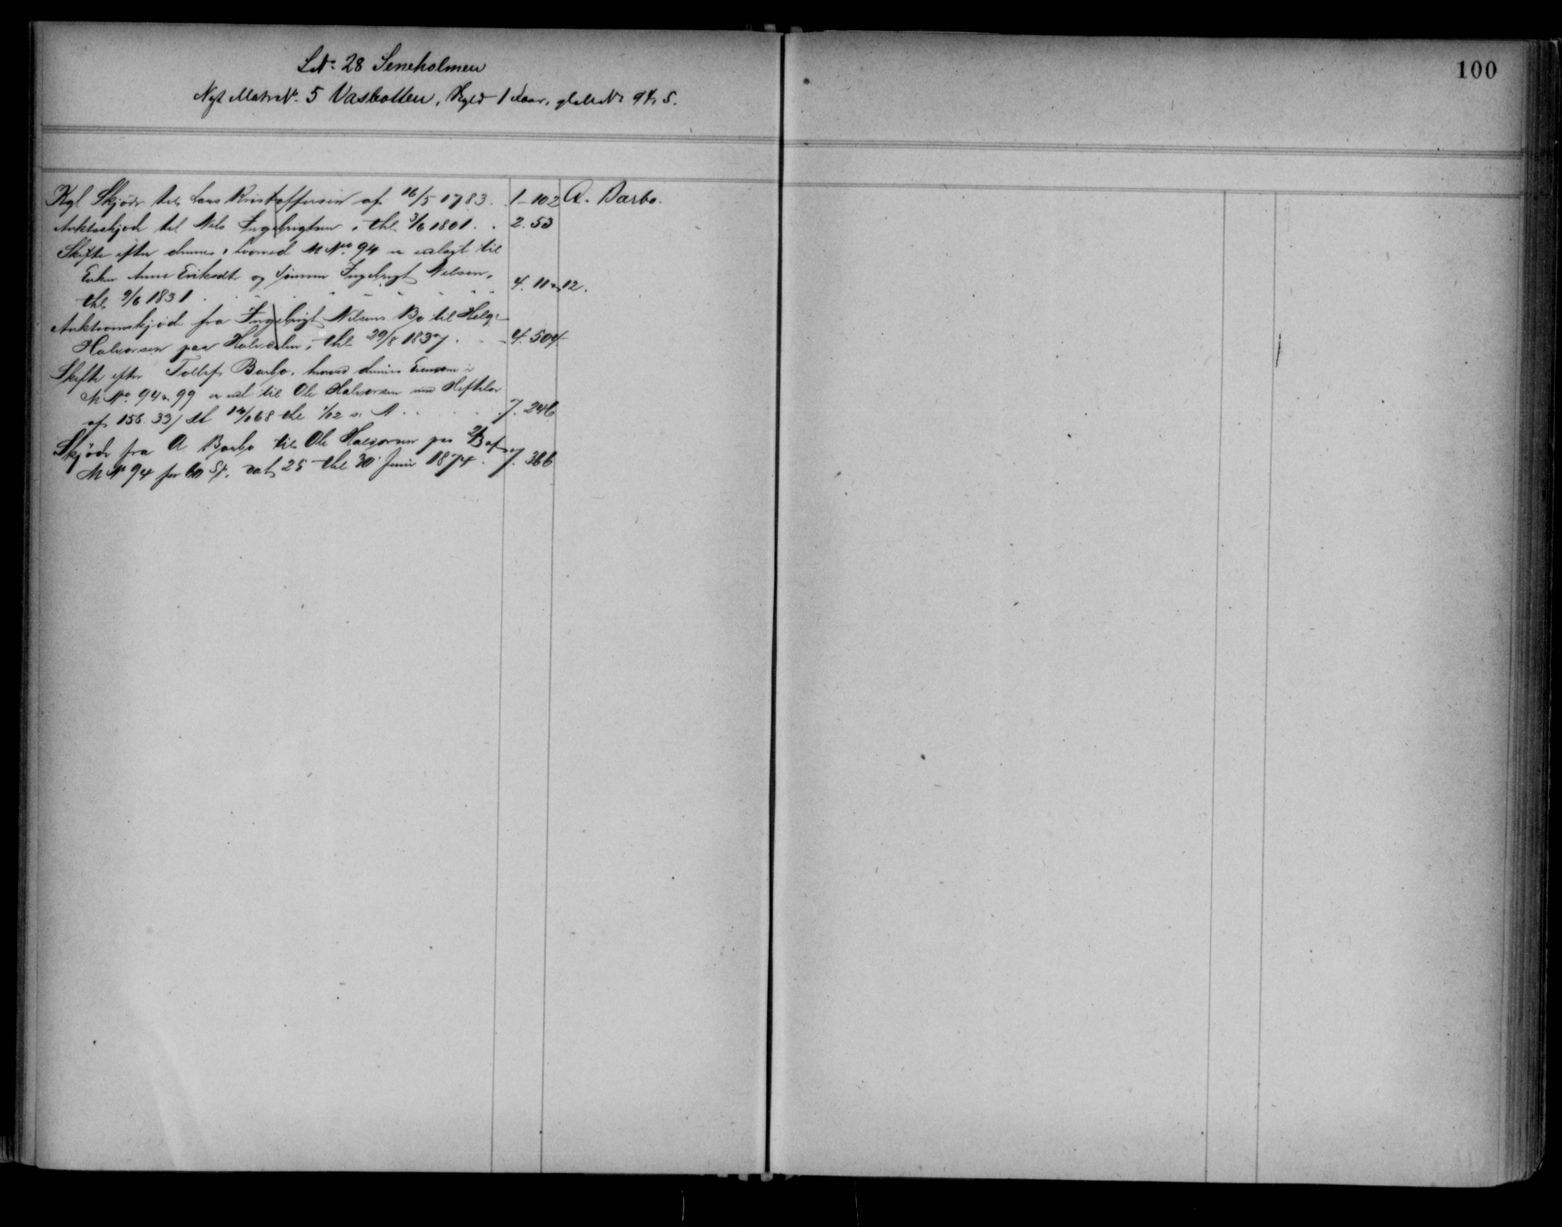 LNo 28 Seneholmen
100
Nyt MatrNo 5 Vasbotten, Skyld 1 glMNo 94, 5.
Kgl Skjøde til Lars Kristoffersen af 16/5 1783. 1-102 A. Barbo.
Auktskjød til Nels Ingebrigtsen, thl 3/6 1801. 2.53
Skifte efter denne, hvorved MNo 94 er udlagt til
Enken Anne Eriksdt og Sønnen Ingebrigt Nilsen,
thl 9/6 1831 4.11 12.
Auktionsskjød fra Ingebrigt Nilsen Bø til Helge
Halvorsen paa thl 29/8 1837. 4.504
Skifte efter Tollef Barbo, hvorved dennes
MNo 94 99 er udl til Ole Halvorsen med Heftelse
af 155. 33 7.246
Skjøde fra A Barbo til Ole Halvorsen paa af
MNo 94 for 60 Sp. dat 25 thl 30 Juni 1874. 7.366